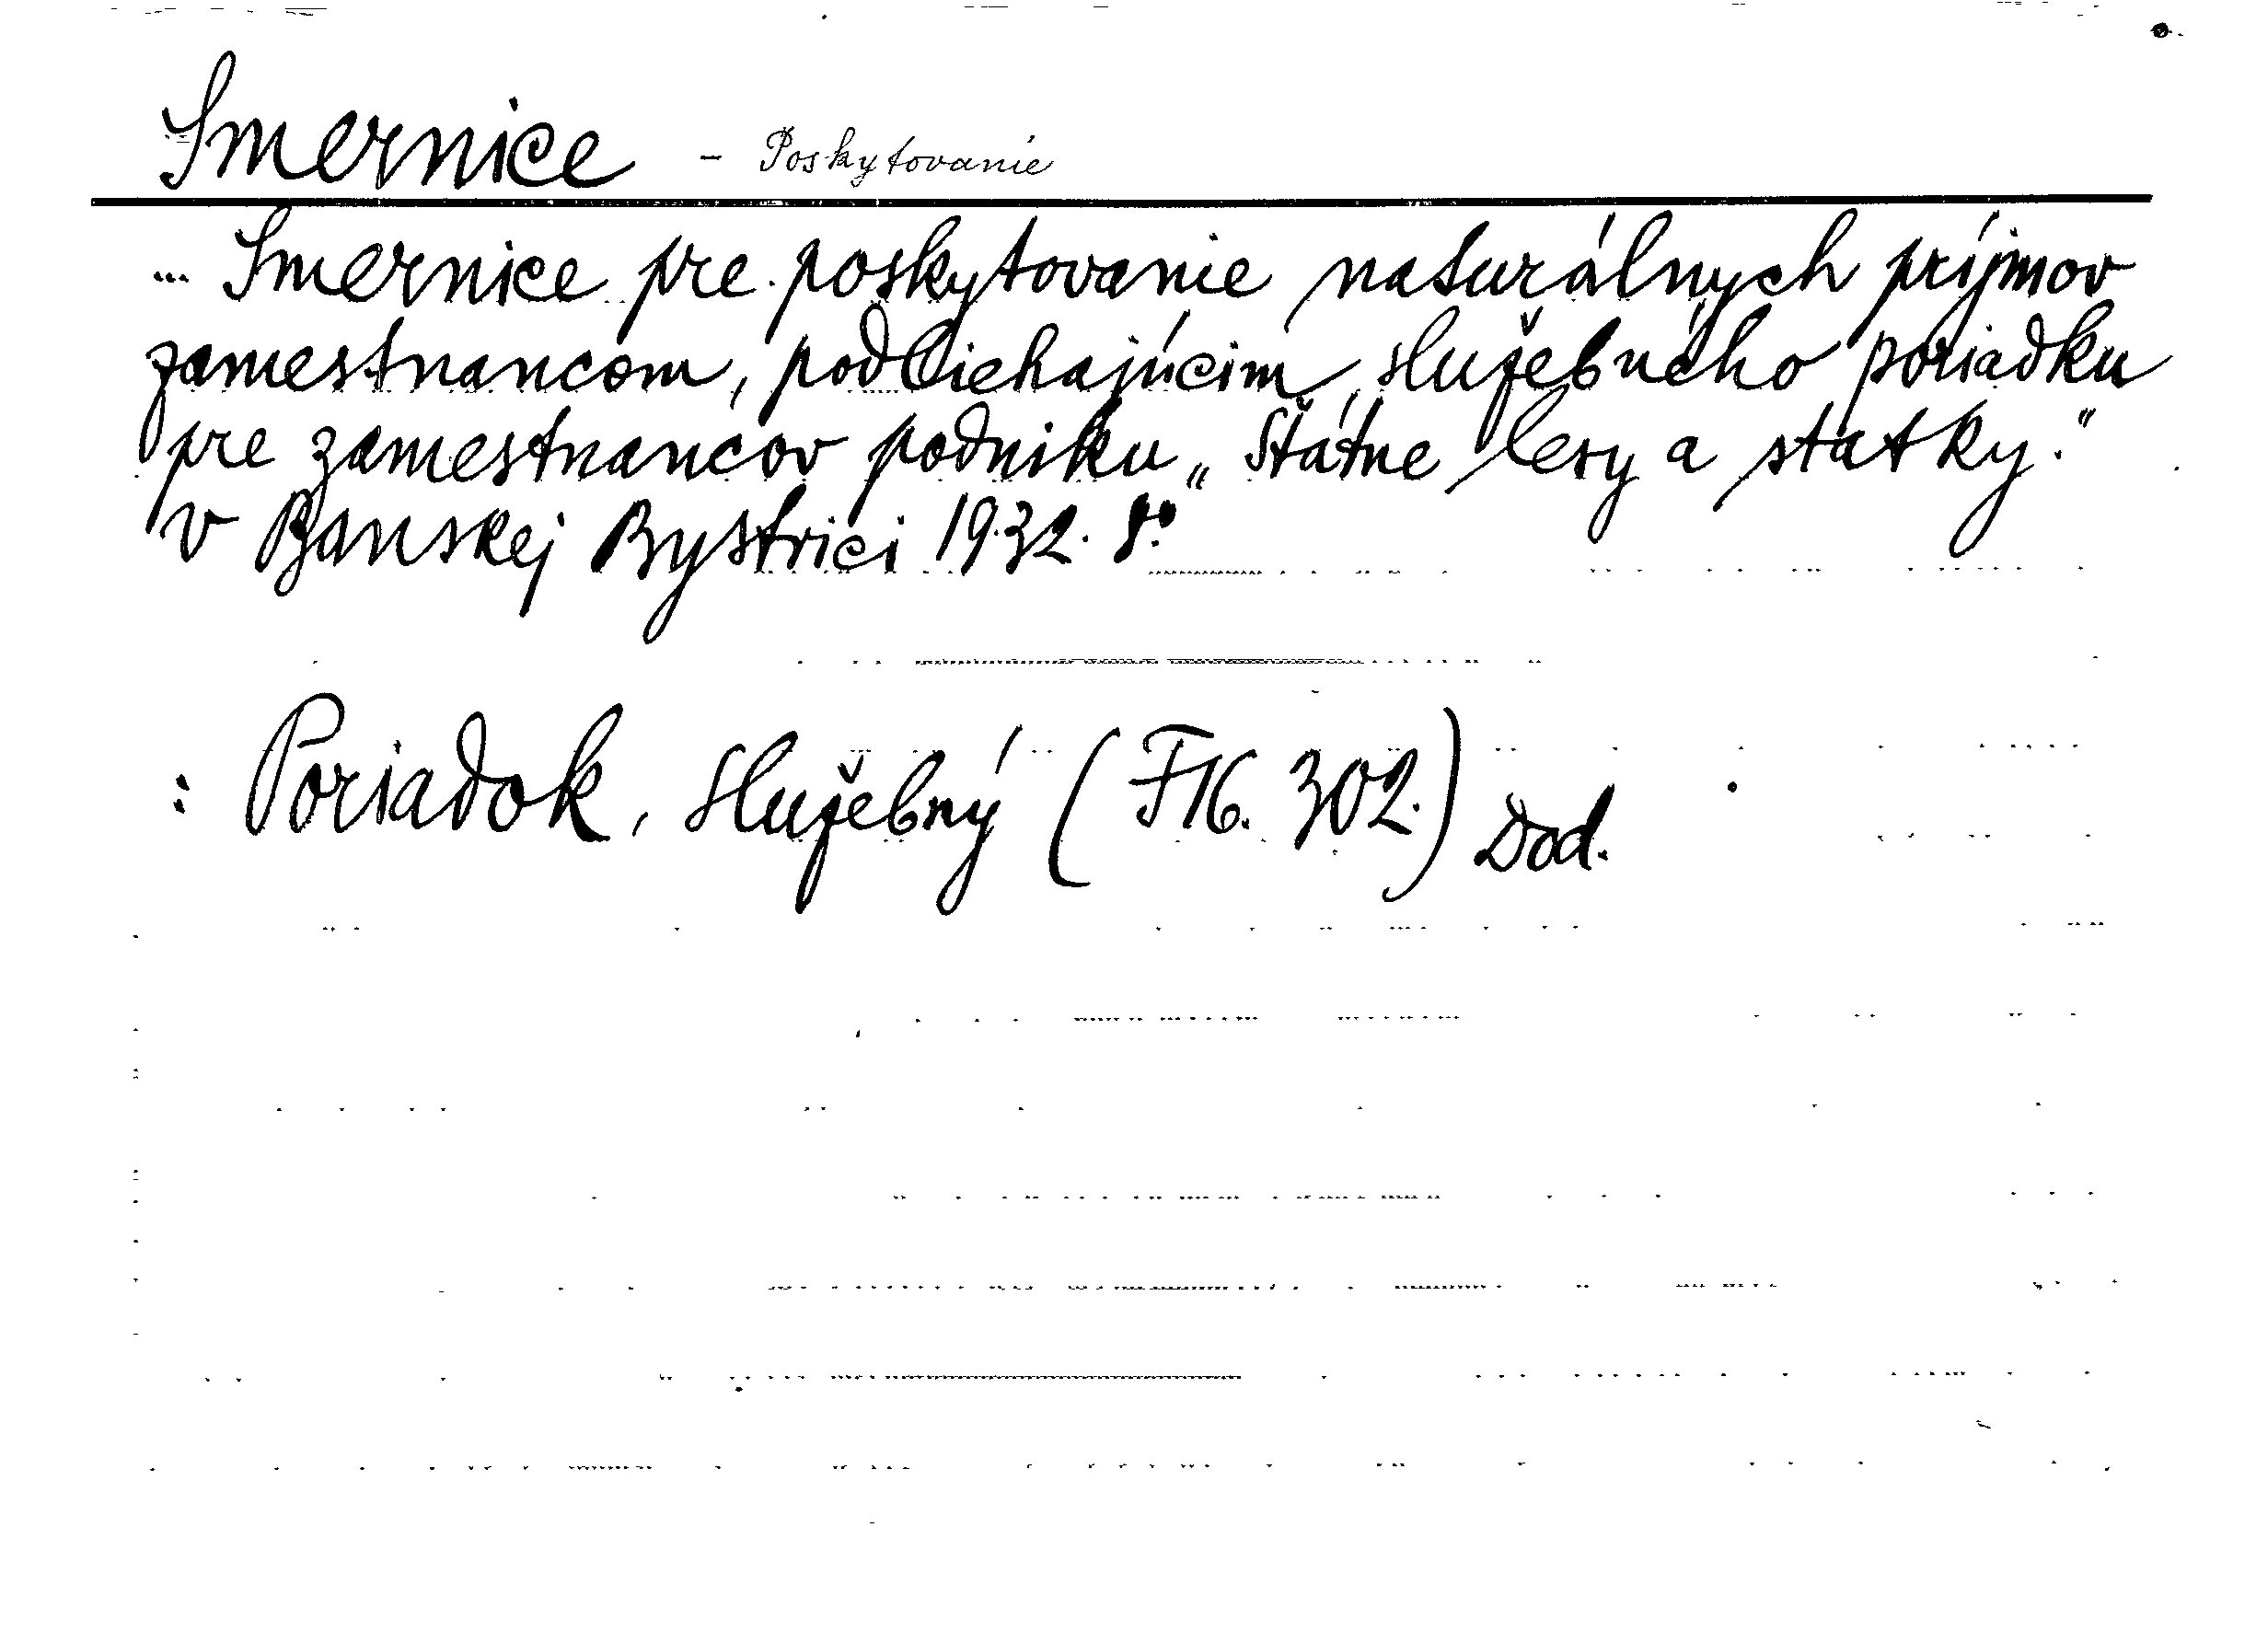 Smernice - Poskytovanie
... Smernice pre poskytovanie naturálnych príjmov
zamestnancom, podliehajúcim služebného poriadku
pre zamestnancov podniku „Štátne lesy a statky."
v Banskej Bystrici 1932. 8°.
: Poriadok, služebný (F16. 302.) Dod.